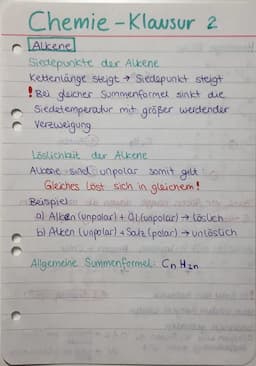 Chemie-Klausur 2
Alkene
Siedepunkte der Alkene
Kettenlänge steigt → Siedepunkt steigt
! Bei gleicher Summenformel sinkt die
Siedetemperatur mit größer werdender
Verzweigung
Löslichkeit der Alkene
Alkene sind unpolar somit gilt
Gleiches löst sich in gleichem!
Beispiel
a) Alken (unpolar) + Öl (unpolar) → löslich
b) Alken (unpolar) + Salz (polar) → unlöslich
Allgemeine Summenformel: CnH2n